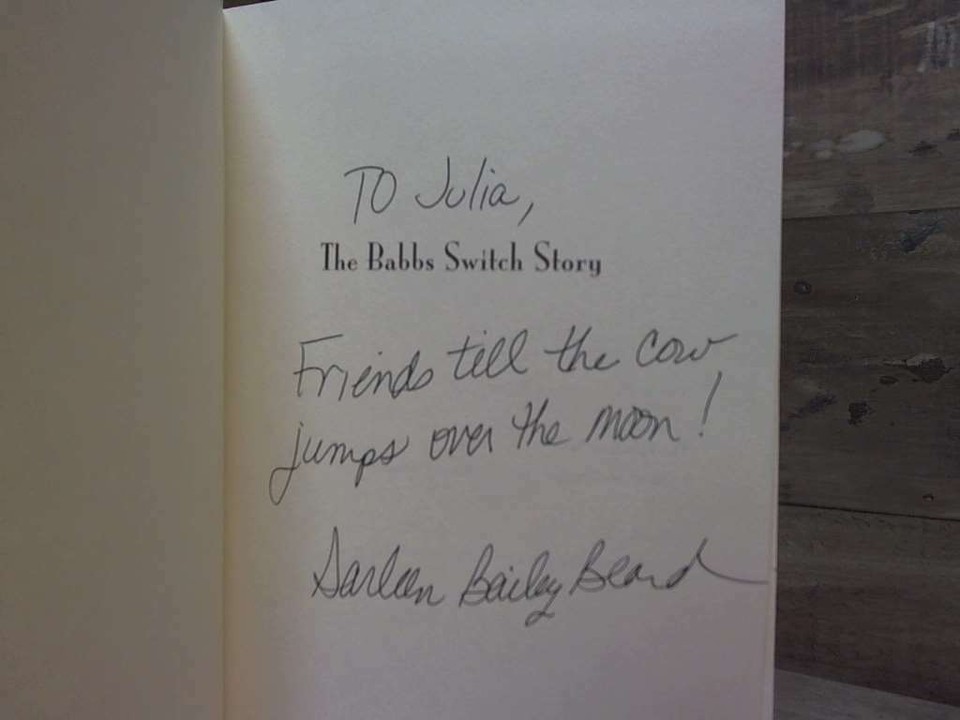 TO Julia,
The Babbs Switch Story
Friends till the cow
jumps over the moon!
Darleen Bailey Beard